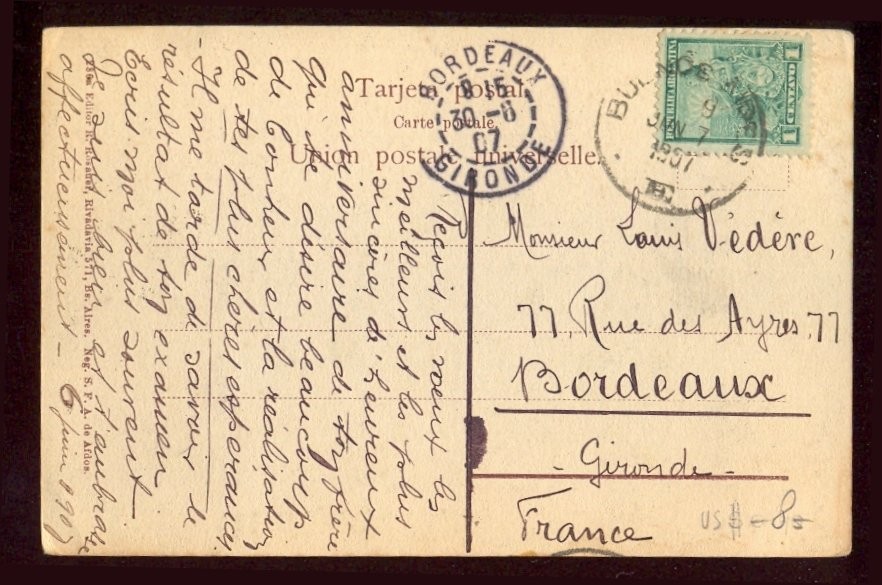 Tarjeta postal
Carte postale
Union postale universelle.
BORDEAUX
8 15
30-6
07
GIRONDE
BUENOS AIRES
9
JUN 7
1907
CENTAVO
1 1
Monsieur Louis Védère,
77, Rue des Ayres, 77
Bordeaux
- Gironde -
France
US $ - 8 -
Reçois les voeux les
meilleurs et les plus
sincères de l'heureux
anniversaire de ton frère
qui te désire beaucoup
de bonheur et la réalisation
de tes plus chères espérances
- Il me tarde de savoir le
résultat de ton examen
Ecris moi plus souvent
Je suis bien et t'embrasse
affectueusement - 6 juin 1907
Editor R. Rosauer, Rivadavia 571, Bs. Aires. Neg. S. F. A. de Afdos.